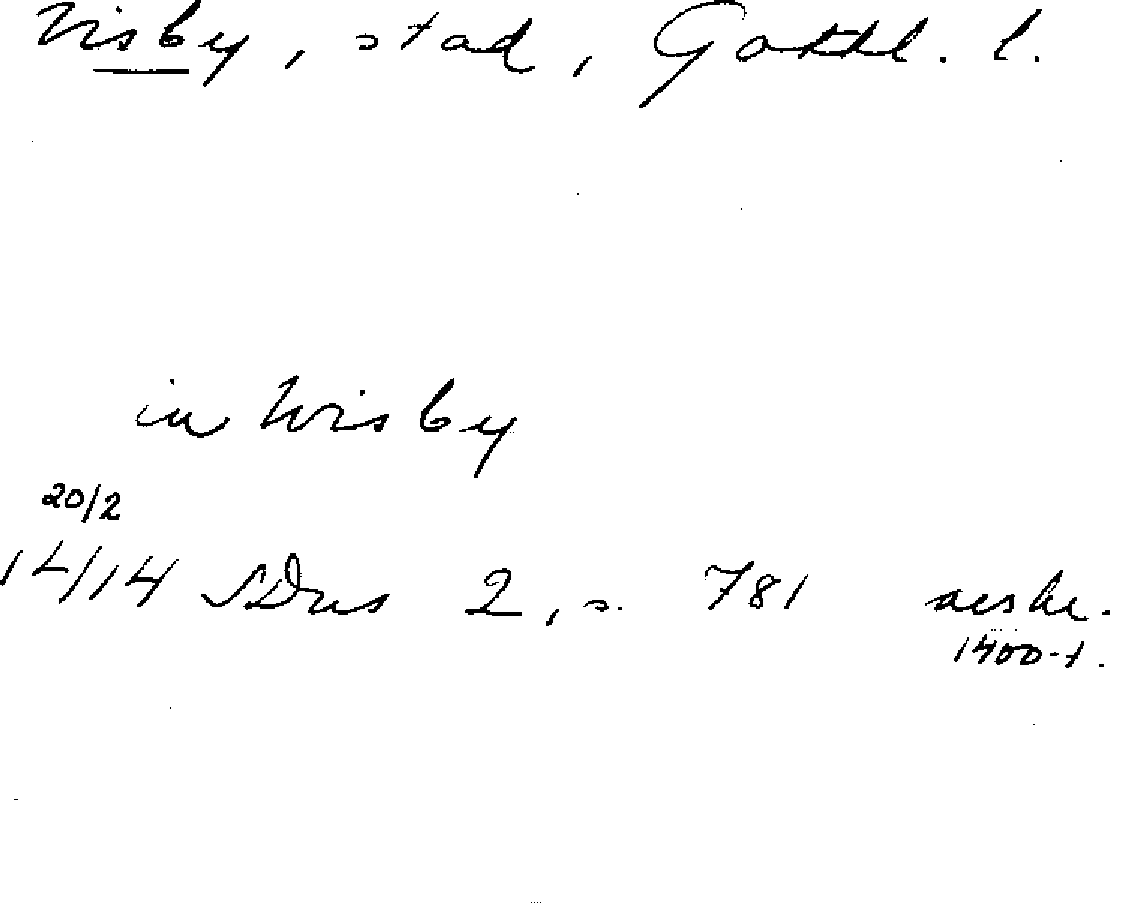 Visby, stad, Gottl. l.
in Wisby
20/2
1414 SDns 2, s. 781 avskr.
1400-t.